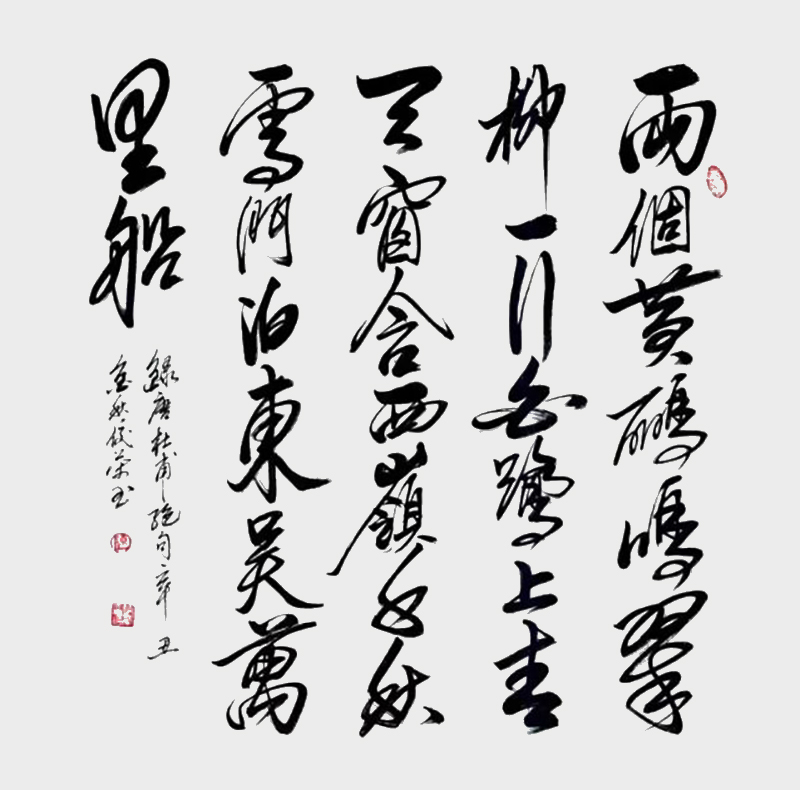 兩個黃鸝鳴翠
柳一行白鷺上青
天窗含西嶺千秋
雪門泊東吳萬
里船
錄唐杜甫絕句辛丑
金秋